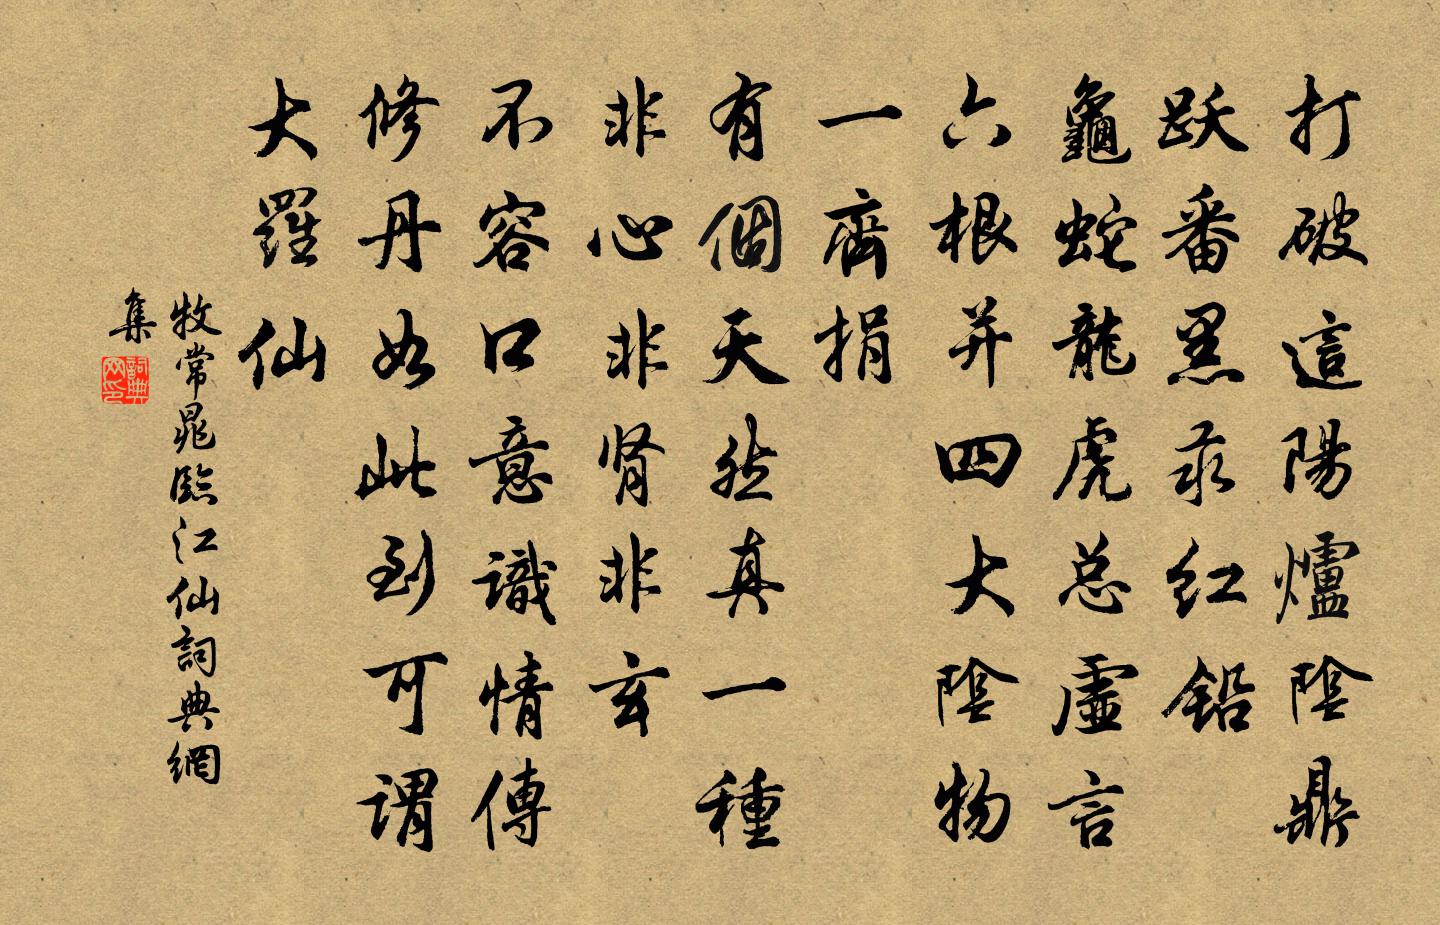 打破這陽爐陰鼎
跃番黑汞红鉛
龜蛇龍虎总虛言
六根并四大陰物
一齊捐
有個天然真一種
非心非腎非玄
不容口意識情傳
修丹如此到可謂
大羅仙
牧常晁臨江仙詞典網
集
詞典网印